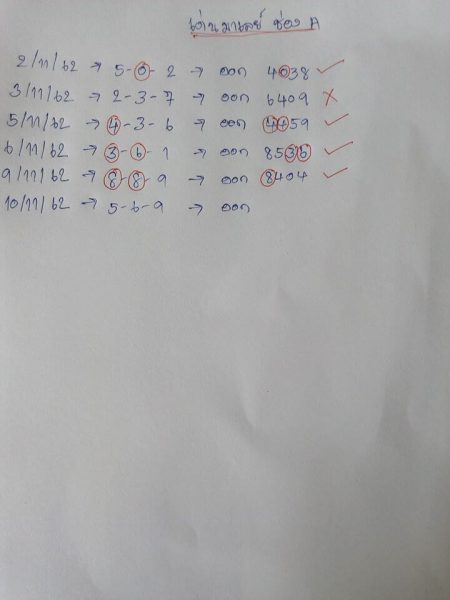 เด่นมาเลย์ ช่อง A
2/11/62 → 5-0-2 → ออก 4038 ✓
3/11/62 → 2-3-7 → ออก 6409 ✗
5/11/62 → 4-3-6 → ออก 4459 ✓
6/11/62 → 3-6-1 → ออก 8536 ✓
9/11/62 → 8-8-9 → ออก 8404 ✓
10/11/62 → 5-6-9 → ออก